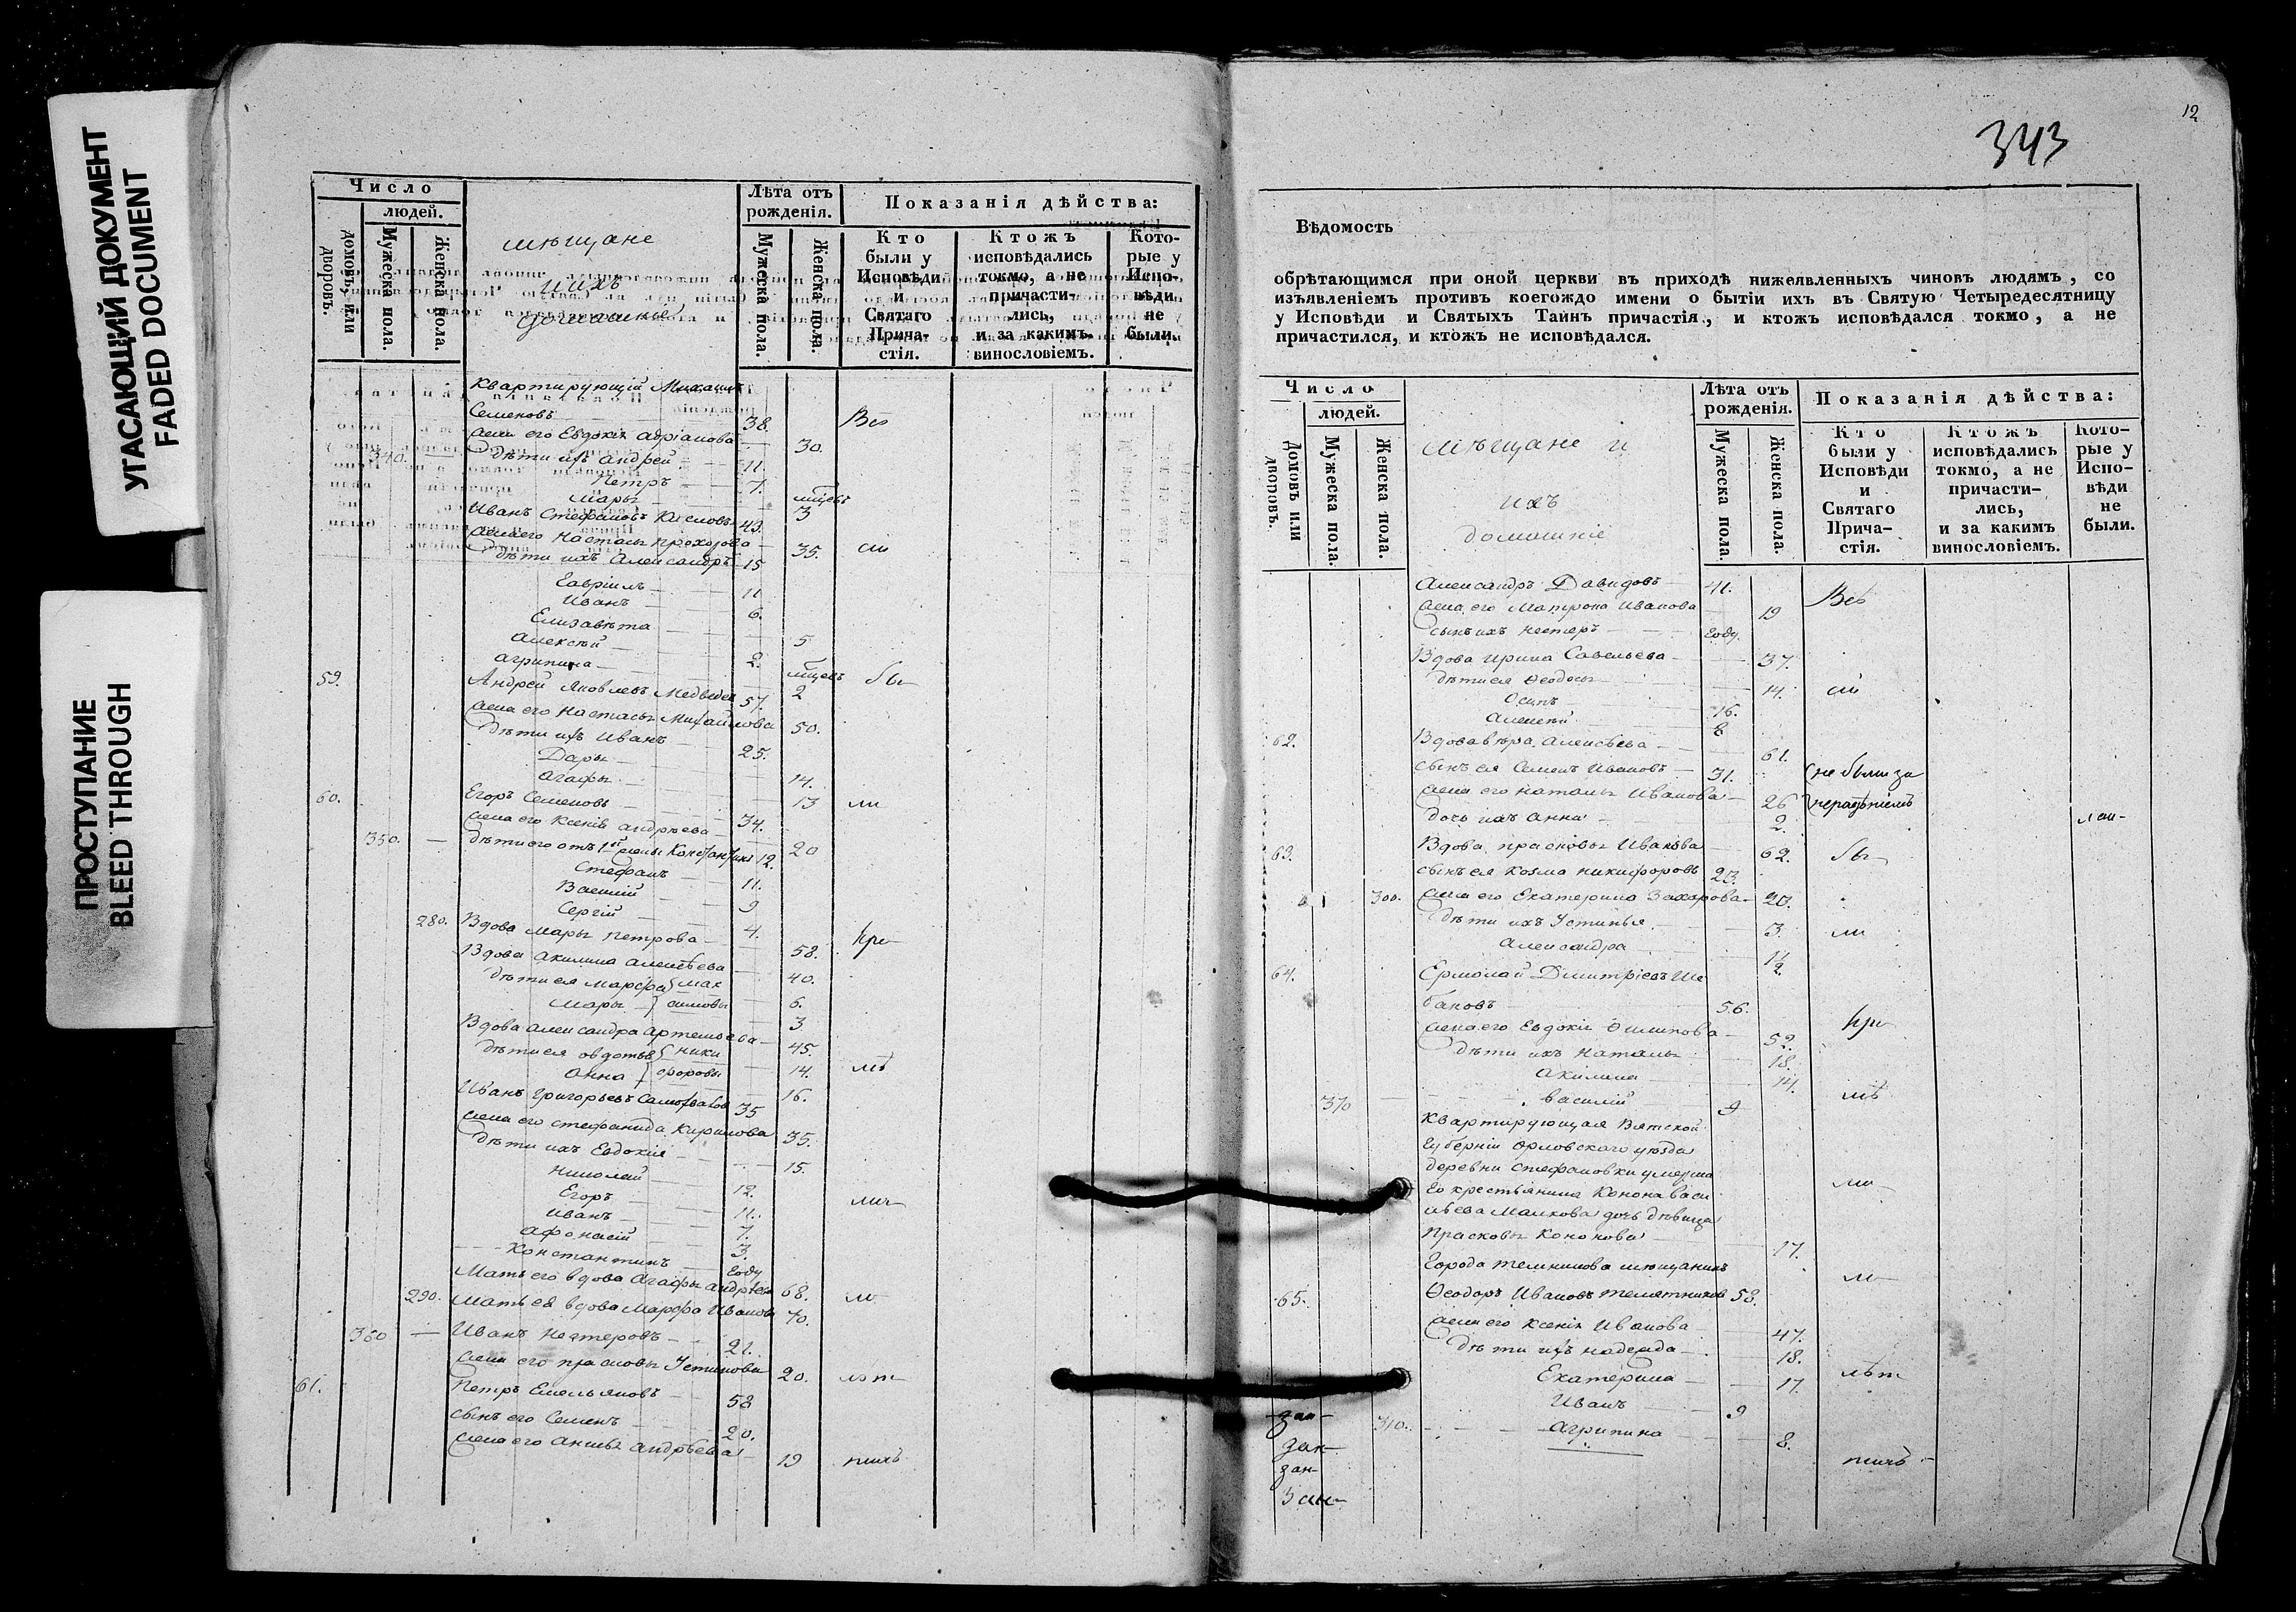 УГАСАЮЩИЙ ДОКУМЕНТ
FADED DOCUMENT
ПРОСТУПАНИЕ
BLEED THROUGH
Число
людей.
домовъ, или дворовъ.
Мужеска пола.
Женска пола.
мѣщане
ихъ
домашнiе
Лѣта отъ рожденія.
Мужеска пола.
Женска пола.
Показанія дѣйства:
Кто были у Исповѣди и Святаго Причастія.
Ктожъ исповѣдались токмо, а не причастились, и за какимъ винословіемъ.
Которые у Исповѣди не были.
Квартирующій Михаилъ
Семеновъ 38. Всѣ
жена его Евдокія Адріанова 30.
340. — дѣти ихъ Андрей 11.
Петръ 7.
Марья мѣцевъ 3
Иванъ Стефановъ Кисловъ 43.
жена его Настасья Прохорова 35. сіи
дѣти ихъ Александръ 15
Гавріилъ 11
Иванъ 6.
Елизавѣта 5
Алексѣй 2.
Агрипина мѣцевъ 2
59. Андрей Яковлевъ Медведев 57. бы
жена его Настасья Михайлова 50.
дѣти ихъ Иванъ 25.
Дарья 14.
Агафья 13
60. Егоръ Семеновъ 34. ли
жена его Ксенія Андрѣева 20
350. — дѣти его отъ 1й жены Константинъ 12.
Стефанъ 11.
Василій 9
Сергій 4.
280. Вдова Марья Петрова 58. при
Вдова Акилина Алексѣева 40.
дѣти ея Марфа } Мак 6.
Марья } симовы 3
Вдова Александра Артемьева 45.
дѣти ея Авдотья } Ники 14.
Анна } форовы 16.
Иванъ Григорьевъ Самохвалов 35
жена его Стефанида Кирилова 35.
дѣти ихъ Евдокія 15.
Николай 12.
Егоръ 11.
Иванъ 7.
Афонасій 3.
Константинъ году
Мать его вдова Агафья Андрѣева 68.
290. Мать ея вдова Марфа Иванова 70.
360 — Иванъ Нестеровъ 21.
жена его Прасковья Устинова 20.
61. Петръ Емельяновъ 58
сынъ его Семенъ 20.
жена его Анисья Андрѣева 19
12
343
Вѣдомость
обрѣтающимся при оной церкви въ приходѣ нижеявленныхъ чиновъ людямъ, со
изъявленіемъ противъ коегождо имени о бытіи ихъ въ Святую Четыредесятницу
у Исповѣди и Святыхъ Таинъ причастія, и ктожъ исповѣдался токмо, а не
причастился, и ктожъ не исповѣдался.
Число
людей.
Домовъ или дворовъ.
Мужеска пола.
Женска пола.
мѣщане и
ихъ
домашніе
Лѣта отъ рожденія.
Мужеска пола.
Женска пола.
Показанія дѣйства:
Кто были у Исповѣди и Святаго Причастія.
Ктожъ исповѣдались токмо, а не причастились, и за какимъ винословіемъ.
Которые у Исповѣди не были.
Александръ Давидовъ 41. Всѣ
жена его Матрона Иванова 19
сынъ ихъ Нестеръ году
Вдова Ирина Савельева 37.
дѣти ея Ѳеодосья 14. сіи
Осипъ 16.
Алексѣй 8
62. Вдова Вѣра Алексѣева 61.
сынъ ея Семенъ Ивановъ 31. не были за
жена его Наталья Иванова 26 нерадѣніемъ
дочь ихъ Анна 2.
63. Вдова Прасковья Иванова 62. бы
сынъ ея Козма Никифоровъ 23.
300. жена его Екатерина Захарова 20.
дѣти ихъ Устинья 3. ли
Александра 1½
64. Ермолай Димитріевъ Ше
бановъ 56. при
жена его Евдокія Филипова 52.
дѣти ихъ Наталья 18.
Акилина 14.
370 Василій 9
Квартирующая Вятской
губерніи Орловскаго уѣзда
деревни Стефановки умерша
го крестьянина Конона Васи
льева Малкова дочь дѣвица
Прасковья Кононова 17.
Города Темникова мѣщанинъ
65. Ѳеодоръ Ивановъ Телятников 58.
жена его Ксенія Иванова 47.
дѣти ихъ Надежда 18.
Екатерина 17.
Иванъ 9
310. Агрипина 8.